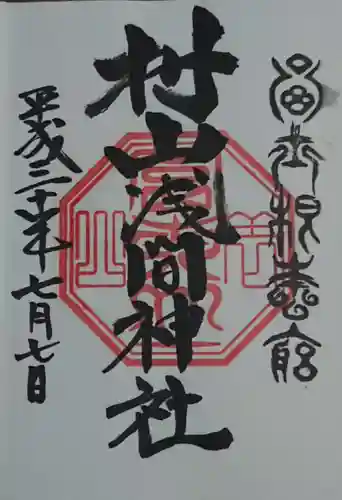 富士根本宮
村山浅間神社
平成三十年七月七日